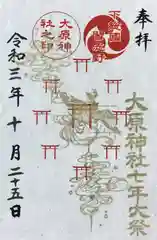 奉拝
大原神社七年大祭
大原神
社之印
令和三年十月二十五日